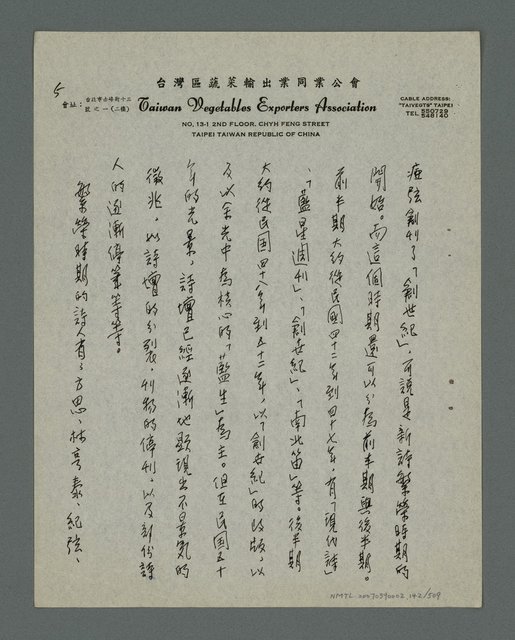 5
台灣區蔬菜輸出業同業公會
會址：台北市赤峰街十三號之一(二樓)
Taiwan Vegetables Exporters Association
CABLE ADDRESS:
"TAIVEGTS" TAIPEI
TEL. 550729
548140
NO. 13-1, 2ND FLOOR, CHYH FENG STREET
TAIPEI TAIWAN REPUBLIC OF CHINA
瘂弦創刊了「創世紀」，可說是新詩繁榮時期的
開始。而這個時期還可以分為前半期與後半期。
前半期大約從民國四十二年到四十七年，有「現代詩」
、「藍星週刊」、「創世紀」、「南北笛」等。後半期
大約從民國四十八年到五十二年，以「創世紀」的改版，以
及以余光中為核心的「藍星」為主。但在民國五十
年的光景，詩壇已經逐漸地顯現出不景氣的
徵兆。以詩壇的分裂，刊物的停刊，以及部份詩
人的逐漸停筆等等。
繁榮時期的詩人有：方思、林亨泰、紀弦、
NMTL 20070590002 142/509